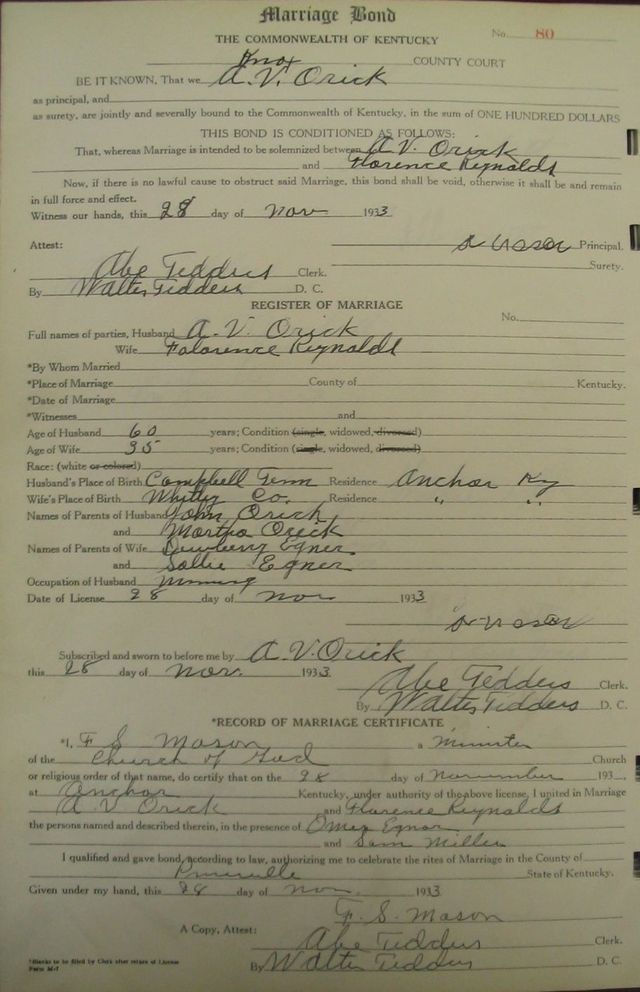 Marriage Bond
No. 80
THE COMMONWEALTH OF KENTUCKY
Knox COUNTY COURT
BE IT KNOWN, That we A. V. Orick
as principal, and
as surety, are jointly and severally bound to the Commonwealth of Kentucky, in the sum of ONE HUNDRED DOLLARS
THIS BOND IS CONDITIONED AS FOLLOWS:
That, whereas Marriage is intended to be solemnized between A. V. Orick
and Florence Reynolds
Now, if there is no lawful cause to obstruct said Marriage, this bond shall be void, otherwise it shall be and remain
in full force and effect.
Witness our hands, this 28 day of Nov 1933
Attest: Principal.
Surety.
Abe Tedders Clerk.
By Walter Tedders D. C.
REGISTER OF MARRIAGE
No.
Full names of parties, Husband A. V. Orick
Wife Folorence Reynolds
*By Whom Married
*Place of Marriage County of Kentucky.
*Date of Marriage
*Witnesses and
Age of Husband 60 years; Condition (single, widowed, divorced)
Age of Wife 35 years; Condition (single, widowed, divorced)
Race: (white or colored)
Husband's Place of Birth Campbell Tenn Residence Anchor Ky
Wife's Place of Birth Whitly Co. Residence " "
Names of Parents of Husband John Orick
and Martha Orick
Names of Parents of Wife Dewberry Egner
and Sallie Egner
Occupation of Husband Mining
Date of License 28 day of Nov 1933
Subscribed and sworn to before me by A. V. Orick
this 28 day of Nov. 1933.
Abe Tedders Clerk.
By Walter Tedders D. C.
*RECORD OF MARRIAGE CERTIFICATE
*I, F S Mason a Minister
of the Church of God Church
or religious order of that name, do certify that on the 28 day of 193
at Anchor Kentucky, under authority of the above license, I united in Marriage
A V Orick and Florence Reynolds
the persons named and described therein, in the presence of Omer Egnor
and Sam Miller
I qualified and gave bond, according to law, authorizing me to celebrate the rites of Marriage in the County of
State of Kentucky.
Given under my hand, this 28 day of Nov. 1933
F. S. Mason
A Copy, Attest:
Abe Tedders Clerk.
By Walter Tedders D. C.
*Blanks to be filled by Clerk after return of License
Form M-7